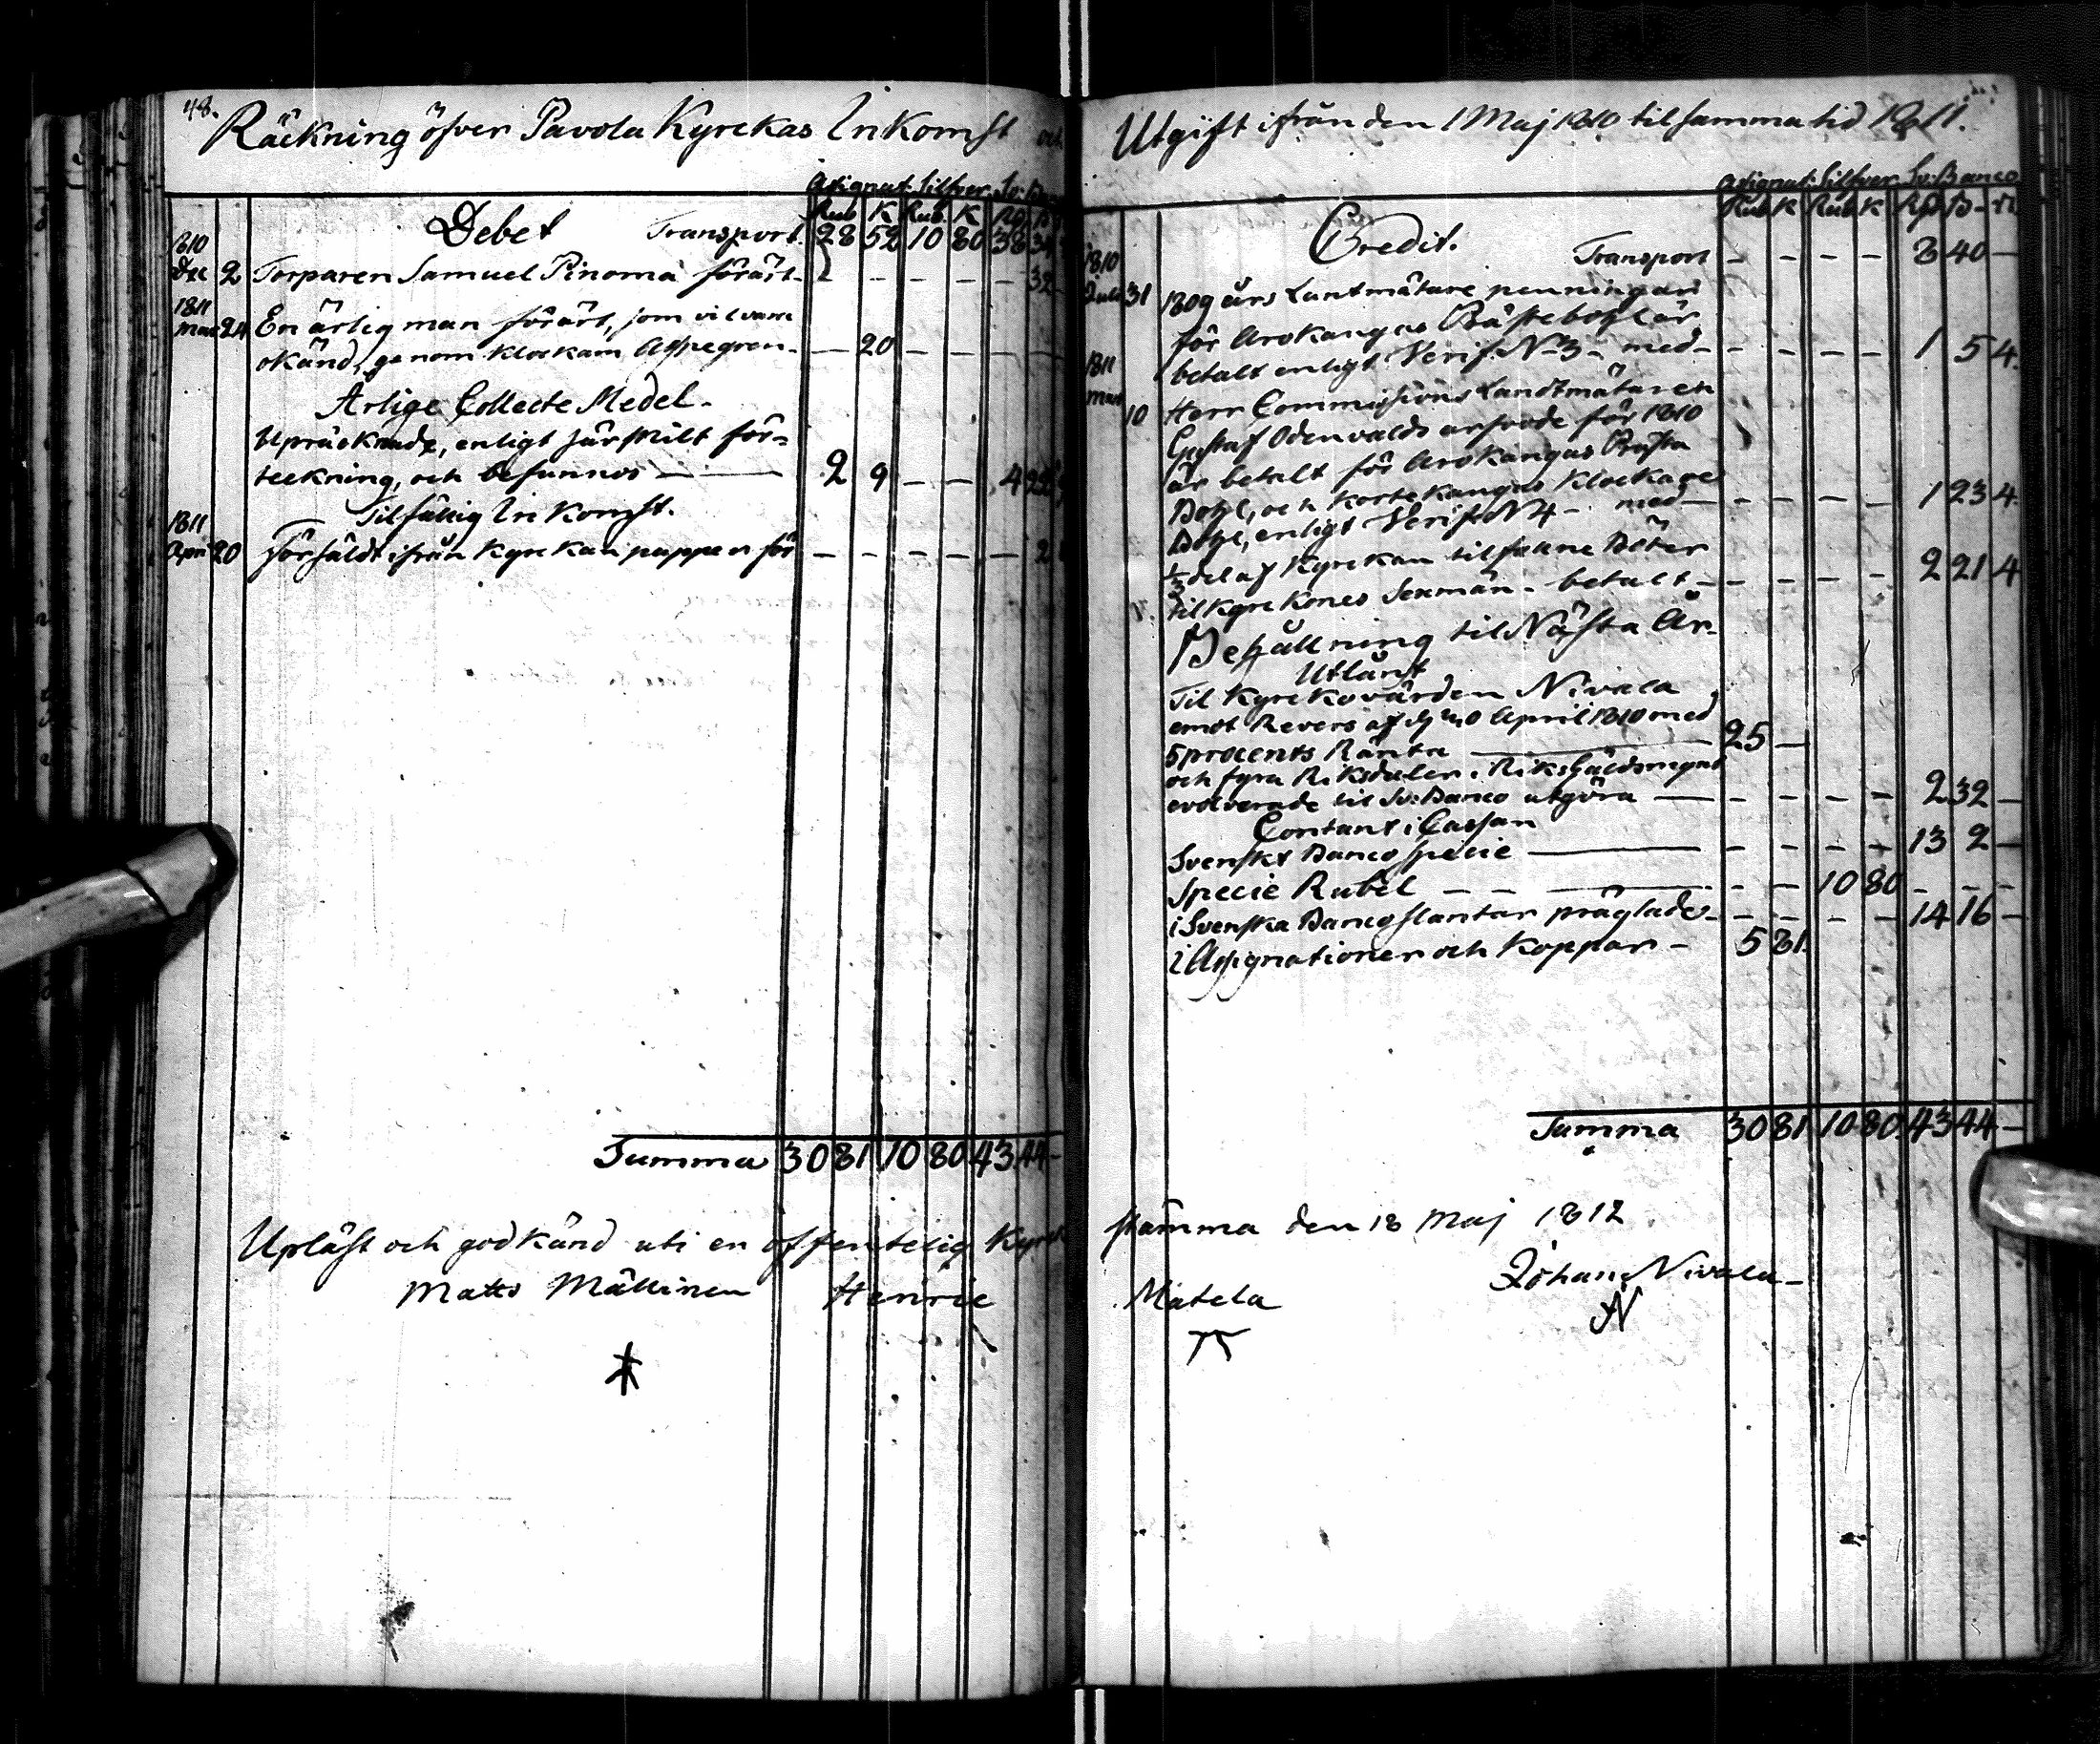 48.
Räckning öfver Pavola Kyrckas Inkomst och
Asignat: Silfver. Sv: Banco
Rub K Rub. K Rd B
Debet Transport 28 52 10 80 38 34
1810
Dec 2 Torparen Samuel Pinoma förärt - - - - - 32
1811
Mars 24 En ärlig man förärt, som vil vara
okänd, genom klockarn Aspegren - - 20 - - - -
Årlige Collecte Medel -
Upräcknade, enligt särskilt för=
teckning, och befunnos - 2 9 - - 4 22
Tilfällig Inkomst.
1811
Apri 20 Försäldt ifrån Kyrckan papper för - - - - - 2
Summa 30 81 10 80 43 44 -
Upläst och godkänd uti en offentelig Kyrck
Matts Mällinen Henric
Utgift ifrån den 1 Maj 1810 til samma tid 1811.
Asignat: Silfver Sv: Banco
Rub K Rub K Rd B - rt
Credit. Transport - - - - 8 40 -
1810
Juli 31 1809 års Lantmätare penningar
för Arokangas Präste bohl är
betalt enligt Verif. N 3 - med - - - - - 1 5 4.
1811
Mars 10 Herr Commissions Landtmätaren
Gustaf Odenvalds arfvode för 1810
är betalt för Arokangas Prästa
Bohl, och Kortekangas Klockare
Bohl, enligt Verif. N 4 - med - - - - - 1 23 4
1/3 del af Kyrckan tilfallne Böter
til Kyrckones Sexmän - betalt - - - - - 2 21 4
Behållning til Nästa År -
Utlånt
Til Kyrckovärden Nivala
emot Revers af d. 20 April 1810 med
5 procents Ränta - 25 -
och fyra Riksdaler i Riksgäldsmynt
evolverade til Sv: Banco utgöra - - - - - 2 32 -
Contant i Cassan
Svenskt Banco Specie - - - - - 13 2 -
Specie Rubel - - - - 10 80 - - -
i Svenska Banco slantar präglade - - - - - 14 16 -
i Assignationer och Koppar - 5 81.
Summa 30 81 10 80 43 44 -
stämma den 18 Maj 1812
Johan Nivala -
Matela